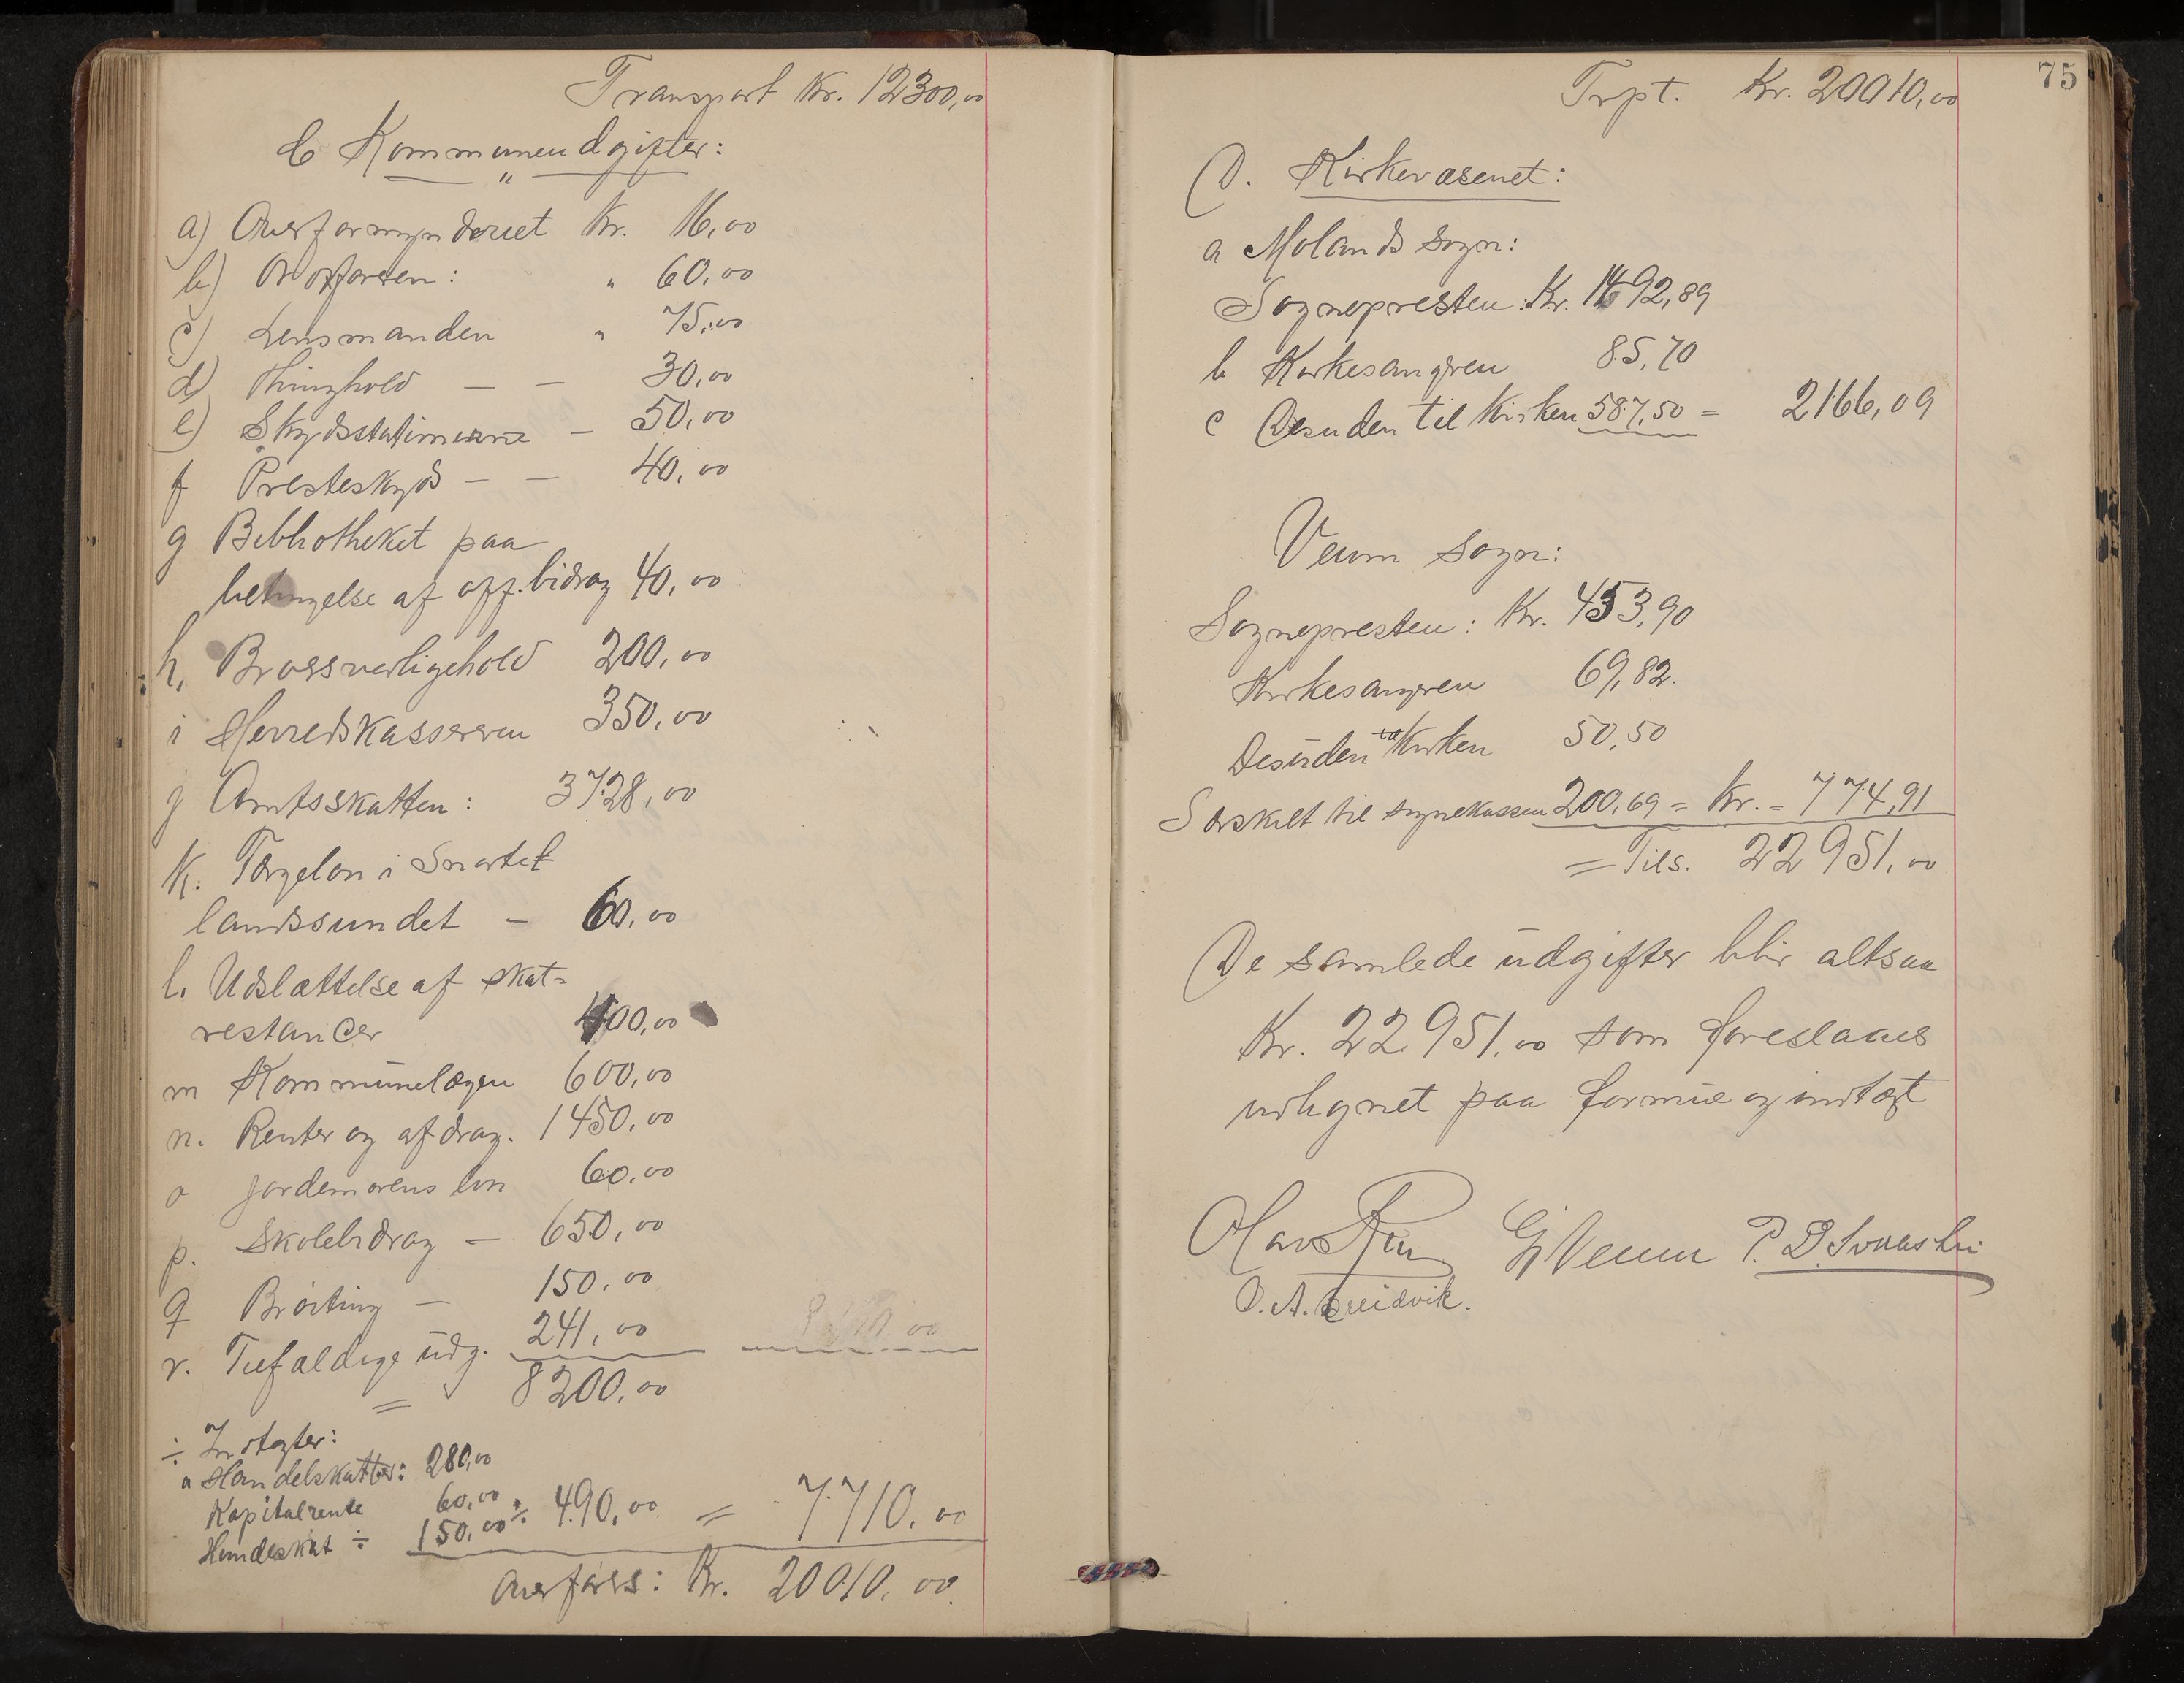 Transport Kr. 12300,00
C Kommuneudgifter:
a) Overformynderiet Kr. 16,00
b) Overfarsten: " 60,00
c) Lensmanden " 75,00
d) Thinghold — — 30,00
e) Skydsstationerne — 50,00
f Presteskyds — — 40,00
g Bibliotheket paa
betingelse af off. bidrag 40,00
h. Brossverligehold 200,00
i Herredskasseren 350,00
j Amtsskatten: 3728,00
k. Færgeløn i Smartet
landssundet — 60,00
l. Udslættelse af skat=
restancer 400,00
m Kommunelægen 600,00
n. Renter og afdrag. 1450,00
o Jordemorens løn 60,00
p. Skolebidrag — 650,00
q Brøiting — 150,00
r. Tilfældige udg. 241,00
= 8200,00
÷ Indtægter:
a Handelskatter: 280,00
Kapitalrente 60,00
Hundeskat ÷ 150,00 ÷ 490,00 = 7710,00
Overføres: Kr. 20010,00
75
Trpt. Kr. 20010,00
D. Kirkevæsenet:
a Molands sogn:
Sognepresten: Kr. 1492,89
b Kirkesangeren 85,70
c Desuden til Kirken 587,50 = 2166,09
Veum sogn:
Sognepresten: Kr. 453,90
Kirkesangeren 69,82.
Desuden til Kirken 50,50
Særskilt til sognekassen 200,69 = Kr. = 774,91
= Tils. 22951,00
De samlede udgifter blir altsaa
Kr. 22951,00 som foreslaaes
udlignet paa formue og indtægt
Olav G Veum P. D.
O. A. Breidvik.